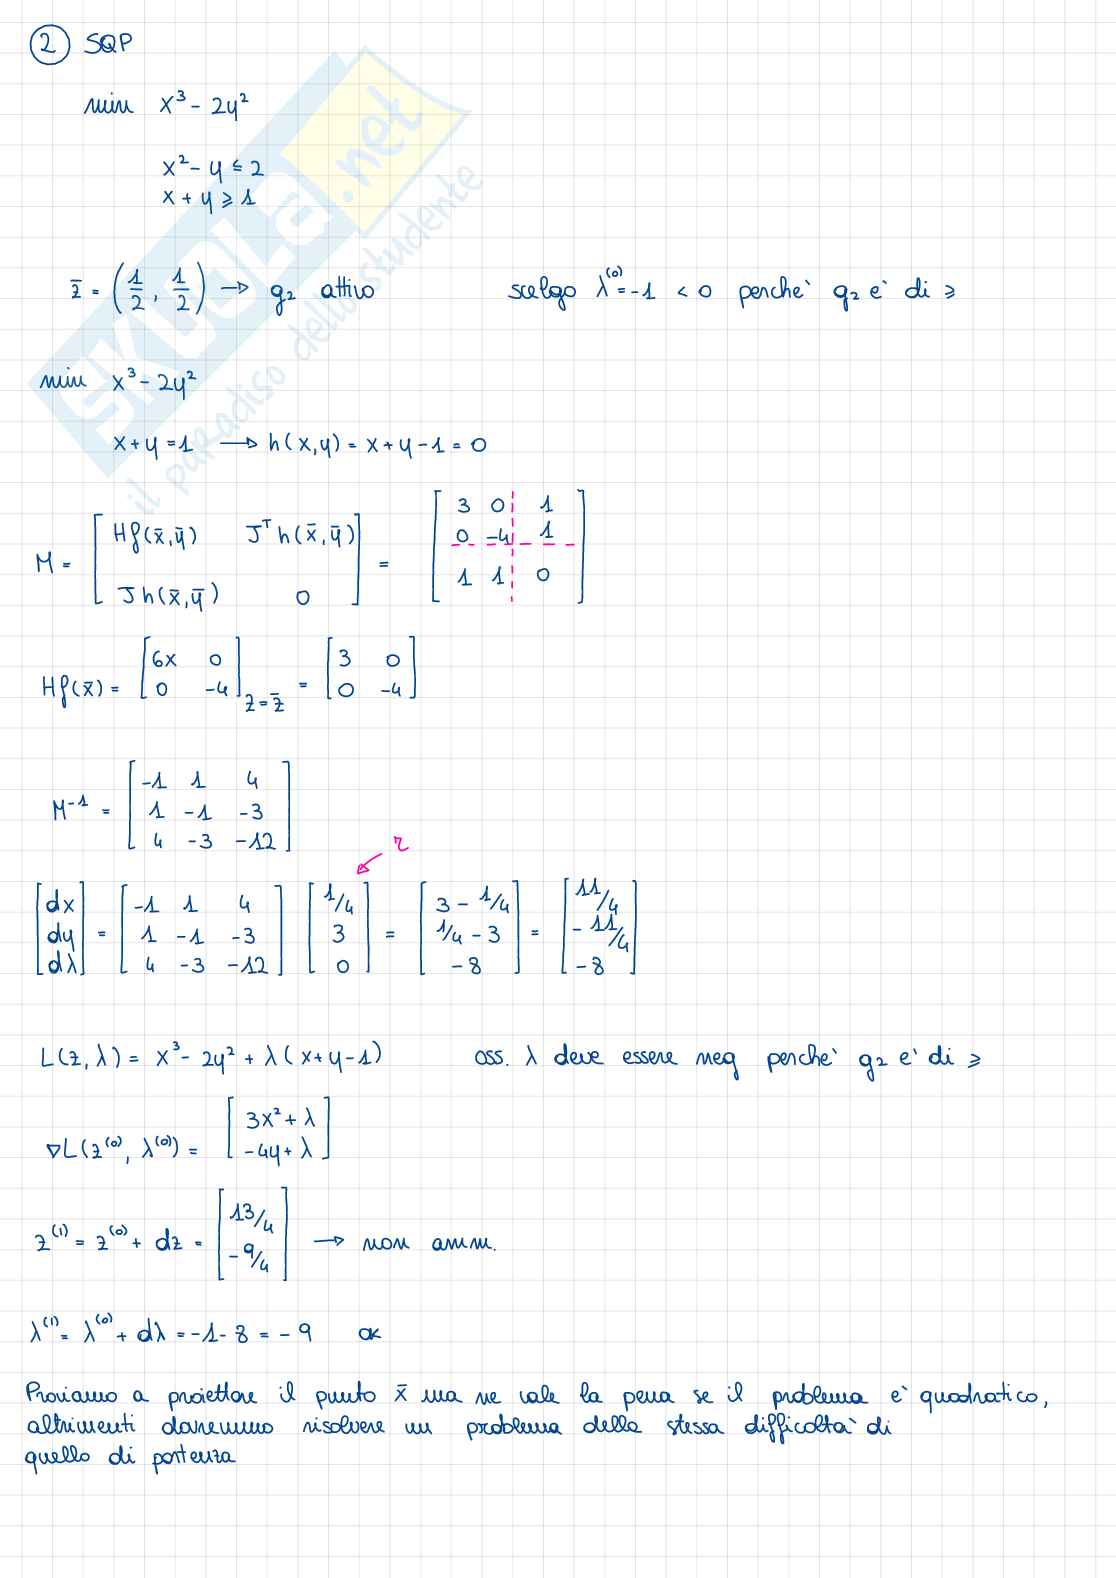 2 SQP
min x³ - 2y²
x² - y ≤ 2
x + y ≥ 1
z̄ = (1/2, 1/2) → g₂ attivo scelgo λ⁽⁰⁾ = -1 < 0 perche' g₂ e' di ≥
min x³ - 2y²
x + y = 1 → h(x,y) = x + y - 1 = 0
M = [Hf(x̄,ȳ) Jᵀh(x̄,ȳ) ; Jh(x̄,ȳ) 0] = [3 0 1 ; 0 -4 1 ; 1 1 0]
Hf(x̄) = [6x 0 ; 0 -4] z = z̄ = [3 0 ; 0 -4]
M⁻¹ = [-1 1 4 ; 1 -1 -3 ; 4 -3 -12]
r
[dx ; dy ; dλ] = [-1 1 4 ; 1 -1 -3 ; 4 -3 -12] [1/4 ; 3 ; 0] = [3 - 1/4 ; 1/4 - 3 ; -8] = [11/4 ; -11/4 ; -8]
L(z, λ) = x³ - 2y² + λ(x + y - 1) oss. λ deve essere neg perche' g₂ e' di ≥
∇L(z⁽⁰⁾, λ⁽⁰⁾) = [3x² + λ ; -4y + λ]
z⁽¹⁾ = z⁽⁰⁾ + dz = [13/4 ; -9/4] → non amm.
λ⁽¹⁾ = λ⁽⁰⁾ + dλ = -1 - 8 = -9 ok
Proviamo a proiettare il punto x̄ ma ne vale la pena se il problema e' quadratico,
altrimenti dovremmo risolvere un problema della stessa difficolta' di
quello di partenza
SKUOLA.net
il paradiso dello studente